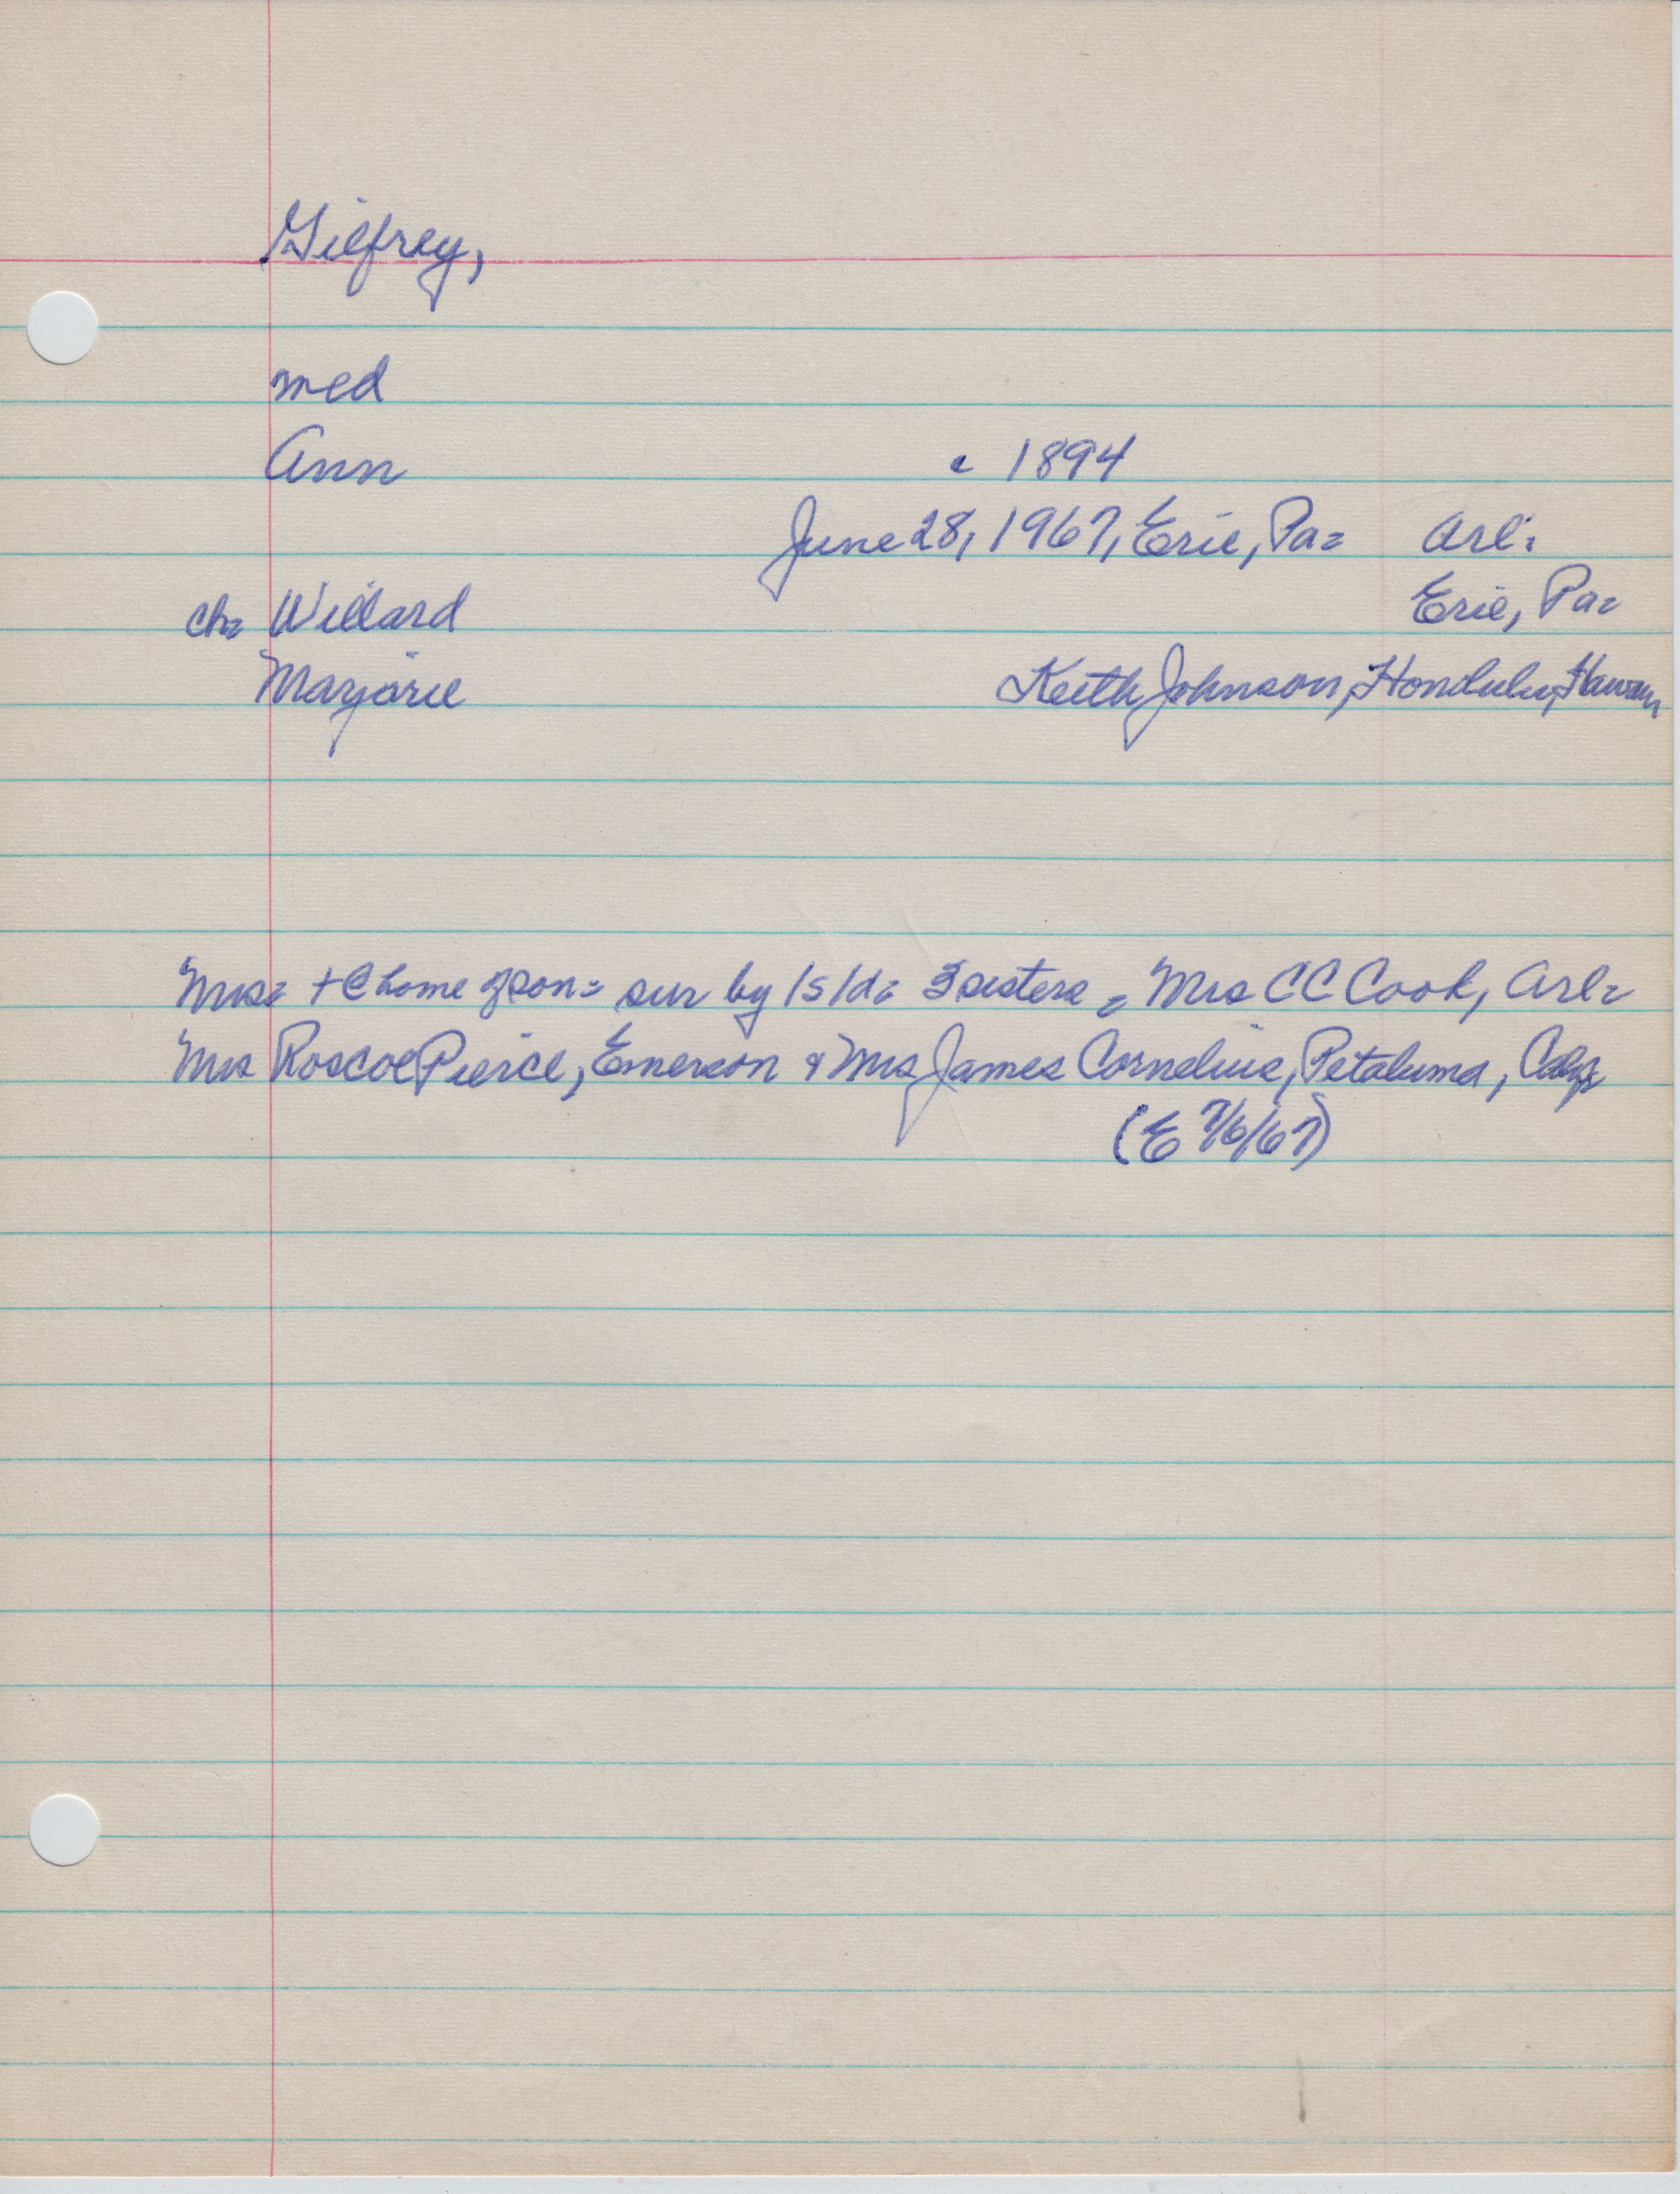 Gilfrey,
med
Ann c 1894
June 28, 1967, Erie, Pa= Arl.
ch= Willard Erie, Pa=
Marjorie Keith Johnson, Honolulu, Hawaii
Mrs= + @ home of son= sur by 1s 1d= 3 sisters = Mrs CC Cook, Arl=
Mrs Roscoe Pierce, Emerson & Mrs James Cornelius, Petaluma, Calif
(E 7/6/67)